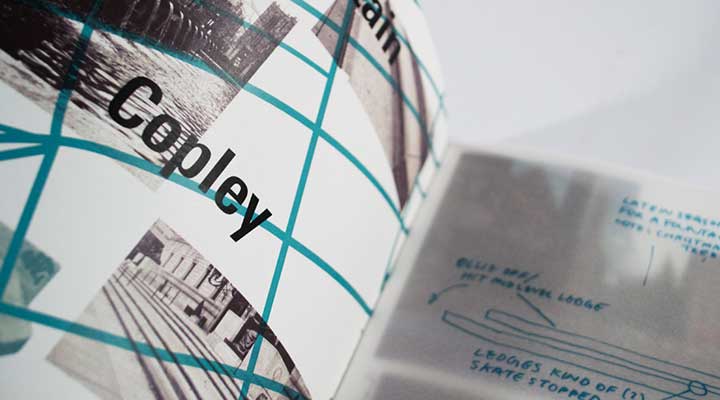 tain
Copley
LATE IN SEASON
FOR A FOUNTAIN
NOTE: CHRISTMAS
TREE
OLLIE OFF/
HIT MID LEVEL LEDGE
LEDGES KIND OF (?)
SKATE STOPPED